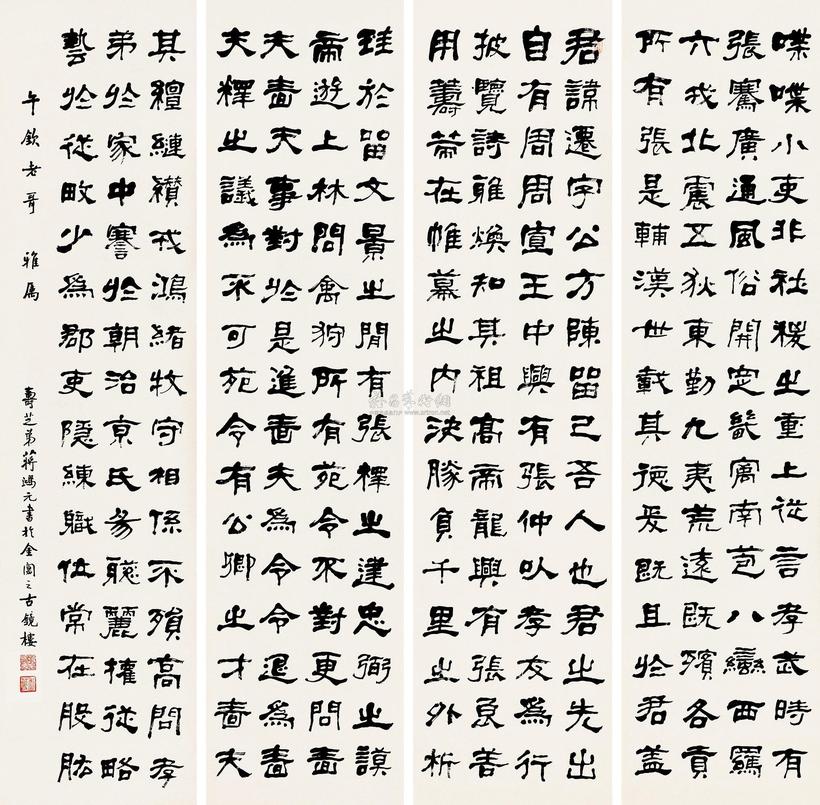 君諱遷字公方陳留己吾人也君之先出
自有周周宣王中興有張仲以孝友為行
披覽詩雅煥知其祖高帝龍興有張良善
用籌策在帷幕之內決勝負千里之外析
珪於留文景之間有張釋之建忠弼之謨
帝遊上林問禽狩所有苑令不對更問嗇
夫嗇夫事對於是進嗇夫為令令退為嗇
夫釋之議為不可苑令有公卿之才嗇夫
喋喋小吏非社稷之重上從言孝武時有
張騫廣通風俗開定畿寓南苞八蠻西羈
六戎北震五狄東勤九夷荒遠既殯各貢
所有張是輔漢世載其德爰既且於君蓋
其繵縺纘戎鴻緒牧守相係不殞高問孝
弟於家中謇於朝治京氏易聰麗權從略
藝於從畋少為郡吏隱練職位常在股肱
午欽老哥 雅屬
壽芝弟蔣鴻元書於金閶之古鏡樓